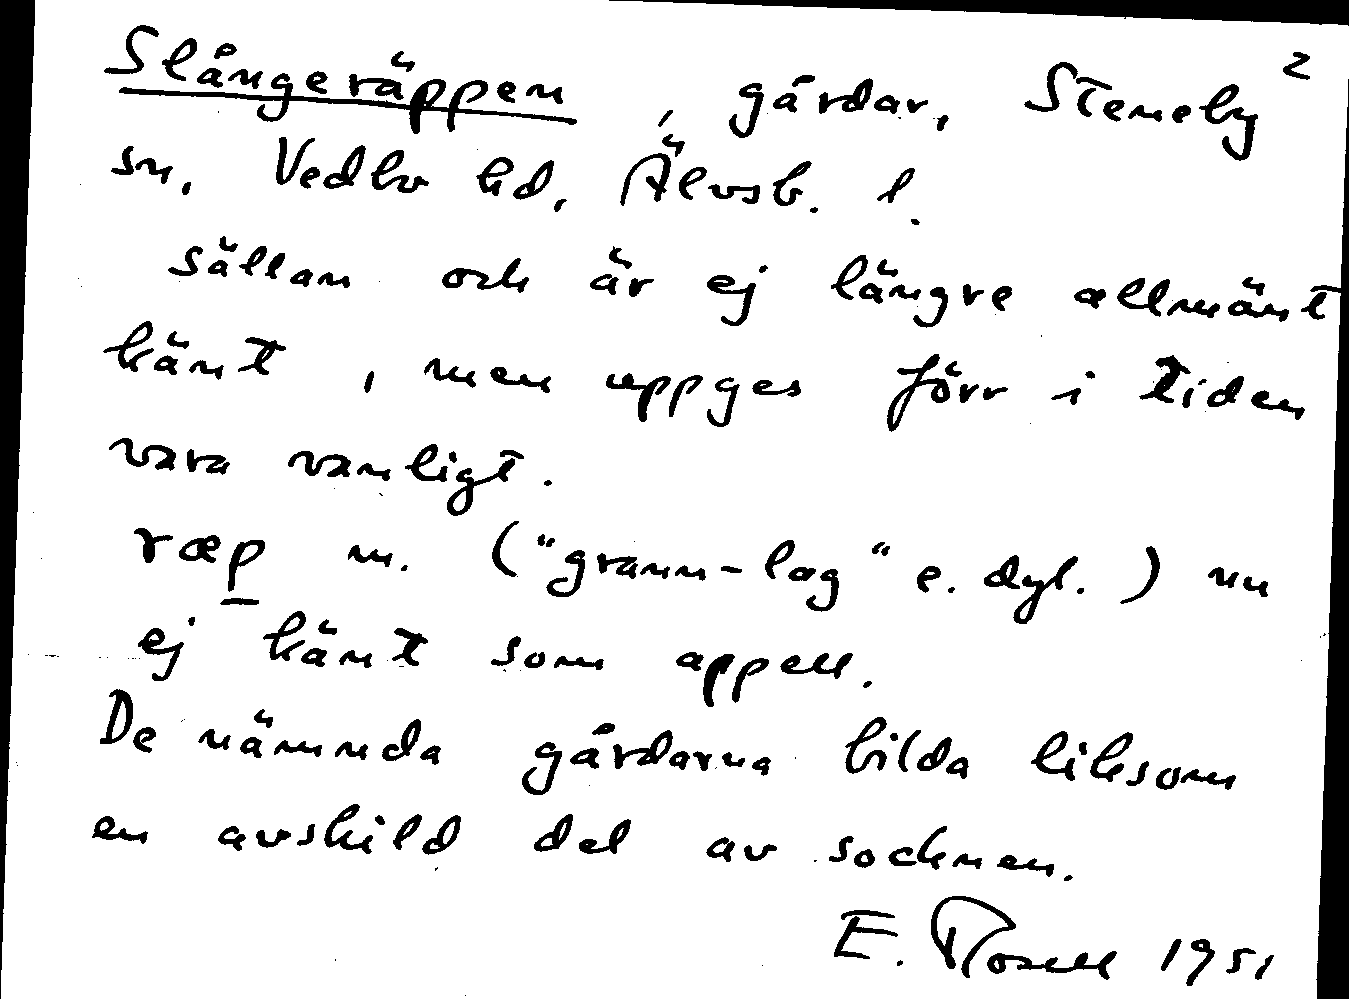 Slångeräppen, gårdar, Steneby 2
sn, Vedbo hd, Älvsb. l.
sällan och är ej längre allmänt
känt, men uppges förr i tiden
vara vanligt.
ræp m. ("grann-lag" e. dyl.) nu
ej känt som appell.
De nämnda gårdarna bilda liksom
en avskild del av socknen.
E. Rosell 1951